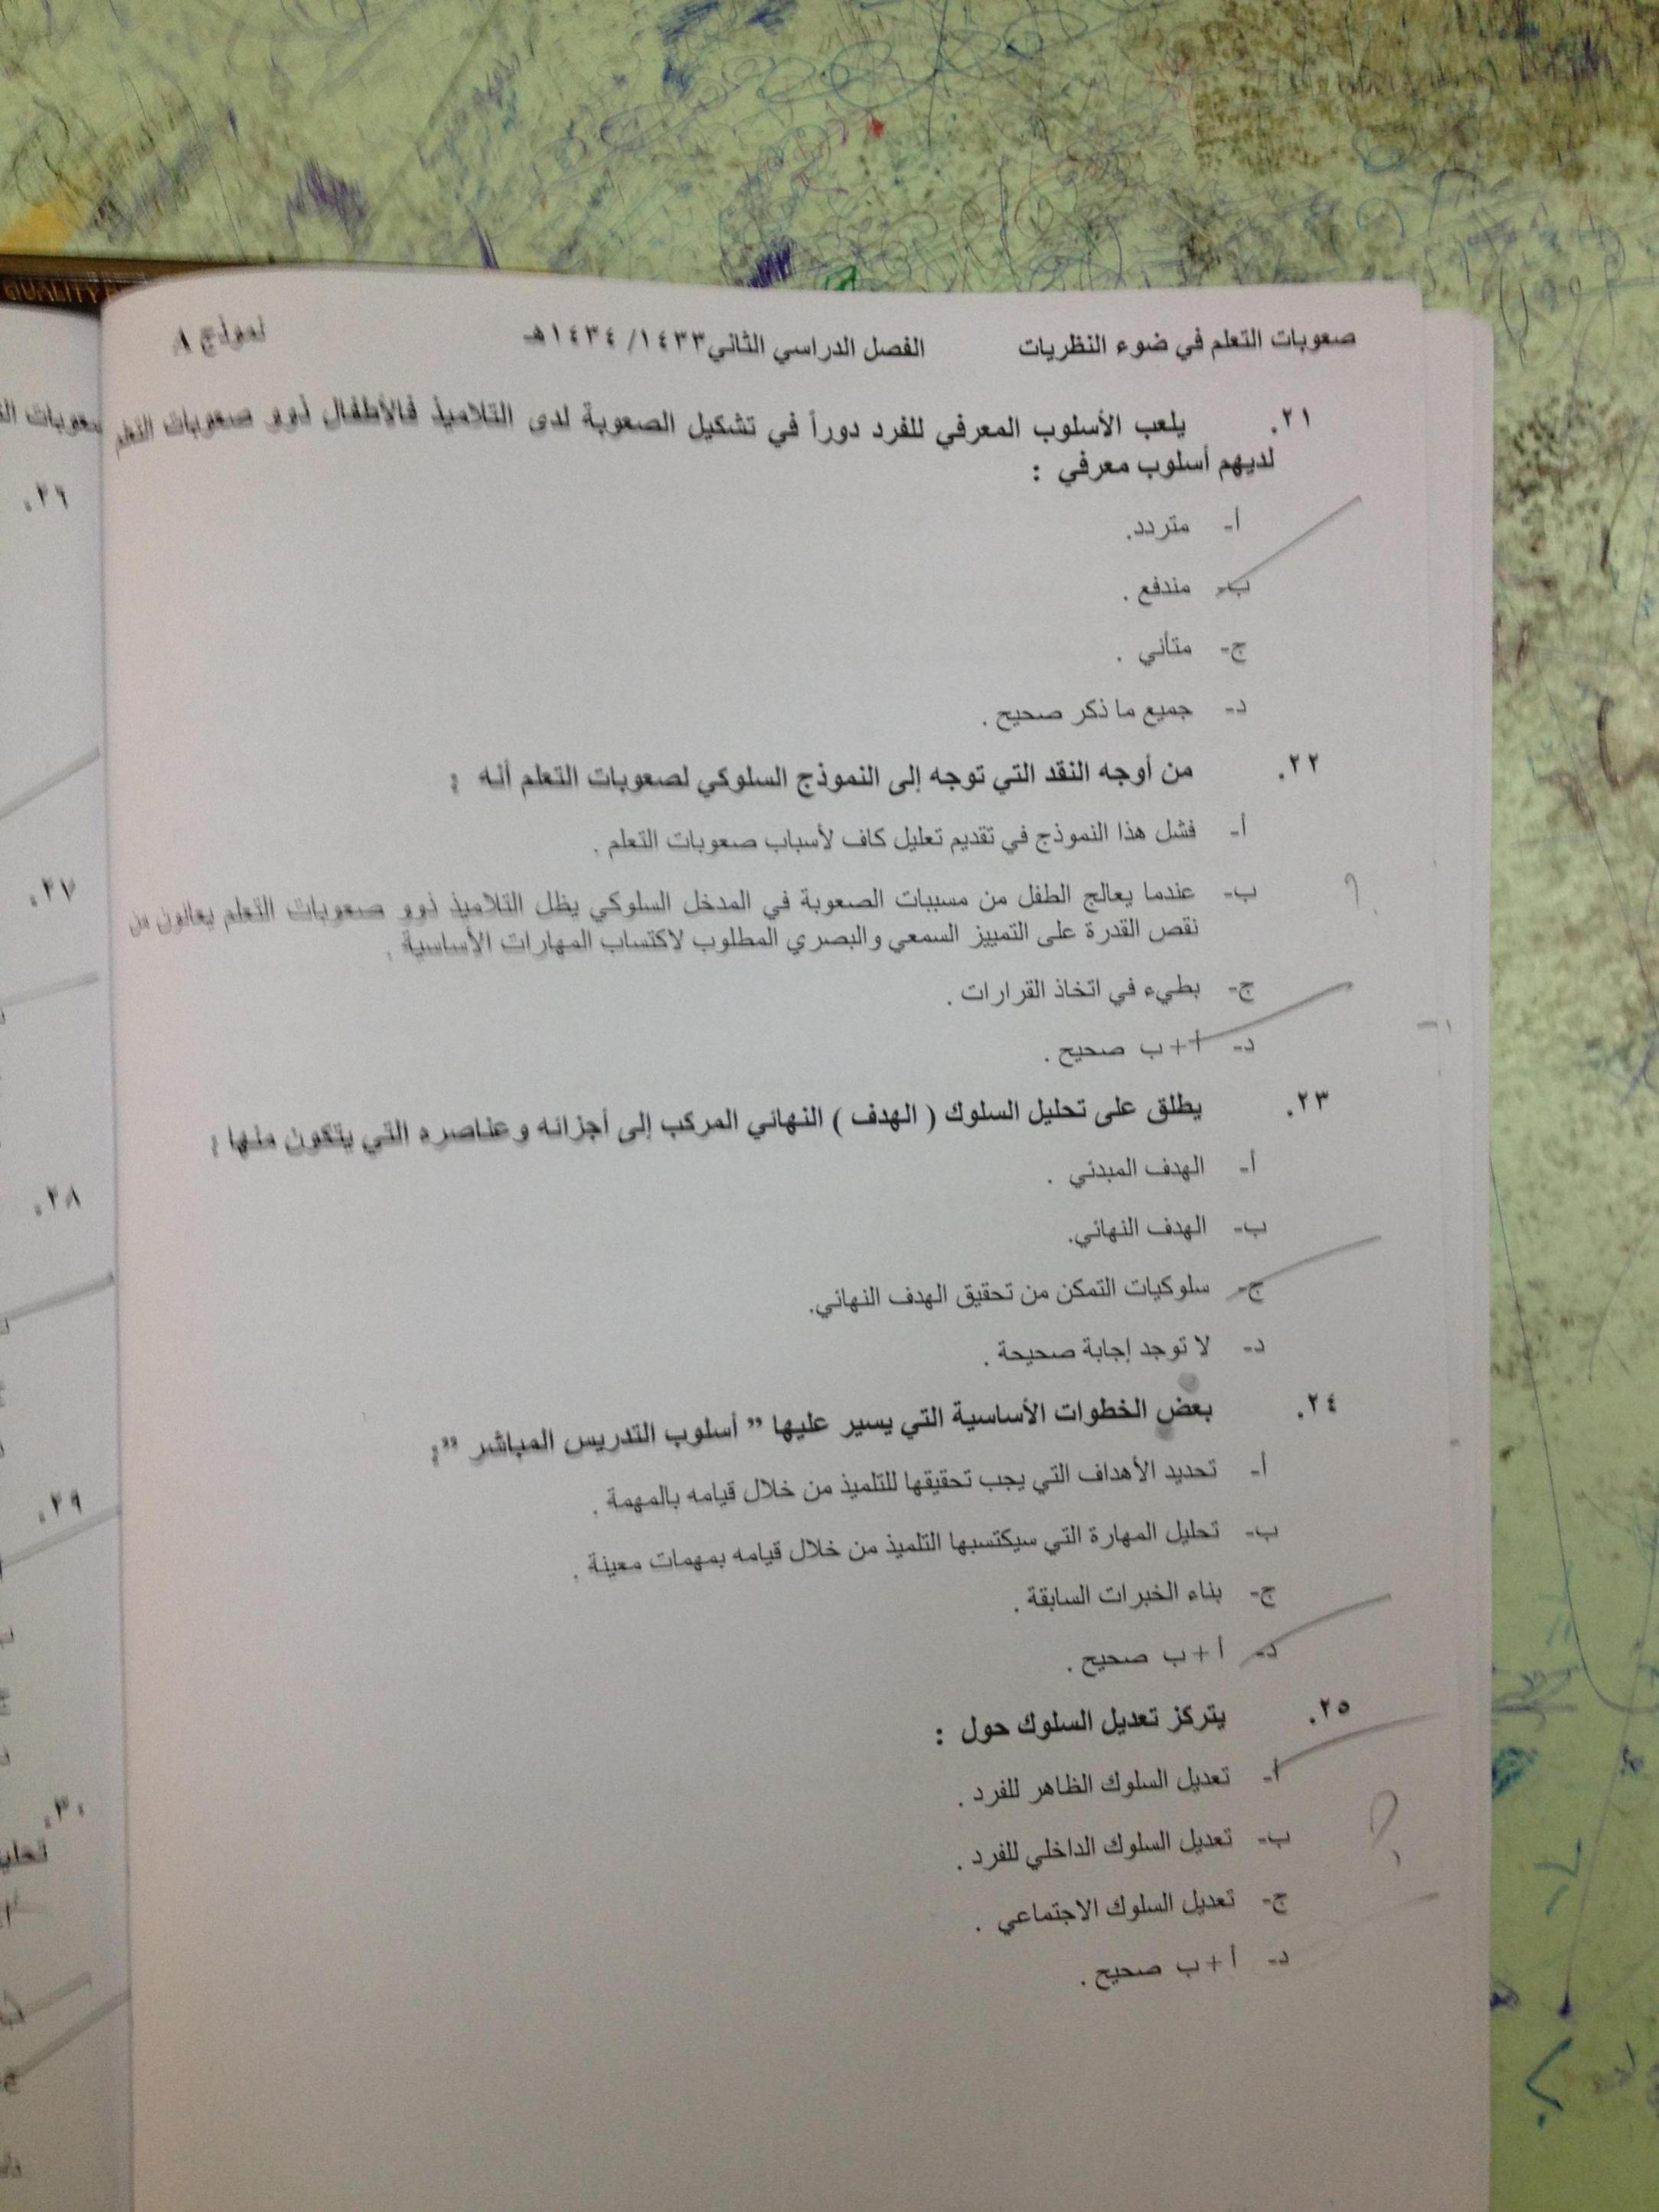 QUALITY
صعوبات التعلم في ضوء النظريات الفصل الدراسي الثاني ١٤٣٣/ ١٤٣٤هـ نموذج A
٢١. يلعب الأسلوب المعرفي للفرد دوراً في تشكيل الصعوبة لدى التلاميذ فالأطفال ذوو صعوبات التعلم
لديهم أسلوب معرفي :
أ- متردد.
ب- مندفع .
ج- متأني .
د- جميع ما ذكر صحيح .
٢٢. من أوجه النقد التي توجه إلى النموذج السلوكي لصعوبات التعلم أنه :
أ- فشل هذا النموذج في تقديم تعليل كاف لأسباب صعوبات التعلم .
ب- عندما يعالج الطفل من مسببات الصعوبة في المدخل السلوكي يظل التلاميذ ذوو صعوبات التعلم يعانون من
نقص القدرة على التمييز السمعي والبصري المطلوب لاكتساب المهارات الأساسية .
ج- بطيء في اتخاذ القرارات .
د- أ+ ب صحيح .
٢٣. يطلق على تحليل السلوك ( الهدف ) النهائي المركب إلى أجزائه وعناصره التي يتكون منها :
أ- الهدف المبدئي .
ب- الهدف النهائي.
ج- سلوكيات التمكن من تحقيق الهدف النهائي.
د- لا توجد إجابة صحيحة .
٢٤. بعض الخطوات الأساسية التي يسير عليها " أسلوب التدريس المباشر ":
أ- تحديد الأهداف التي يجب تحقيقها للتلميذ من خلال قيامه بالمهمة .
ب- تحليل المهارة التي سيكتسبها التلميذ من خلال قيامه بمهمات معينة .
ج- بناء الخبرات السابقة .
د- أ + ب صحيح .
٢٥. يتركز تعديل السلوك حول :
أ- تعديل السلوك الظاهر للفرد .
ب- تعديل السلوك الداخلي للفرد .
ج- تعديل السلوك الاجتماعي .
د- أ + ب صحيح .
٢٦.
٢٧.
٢٨.
٢٩.
٣٠.